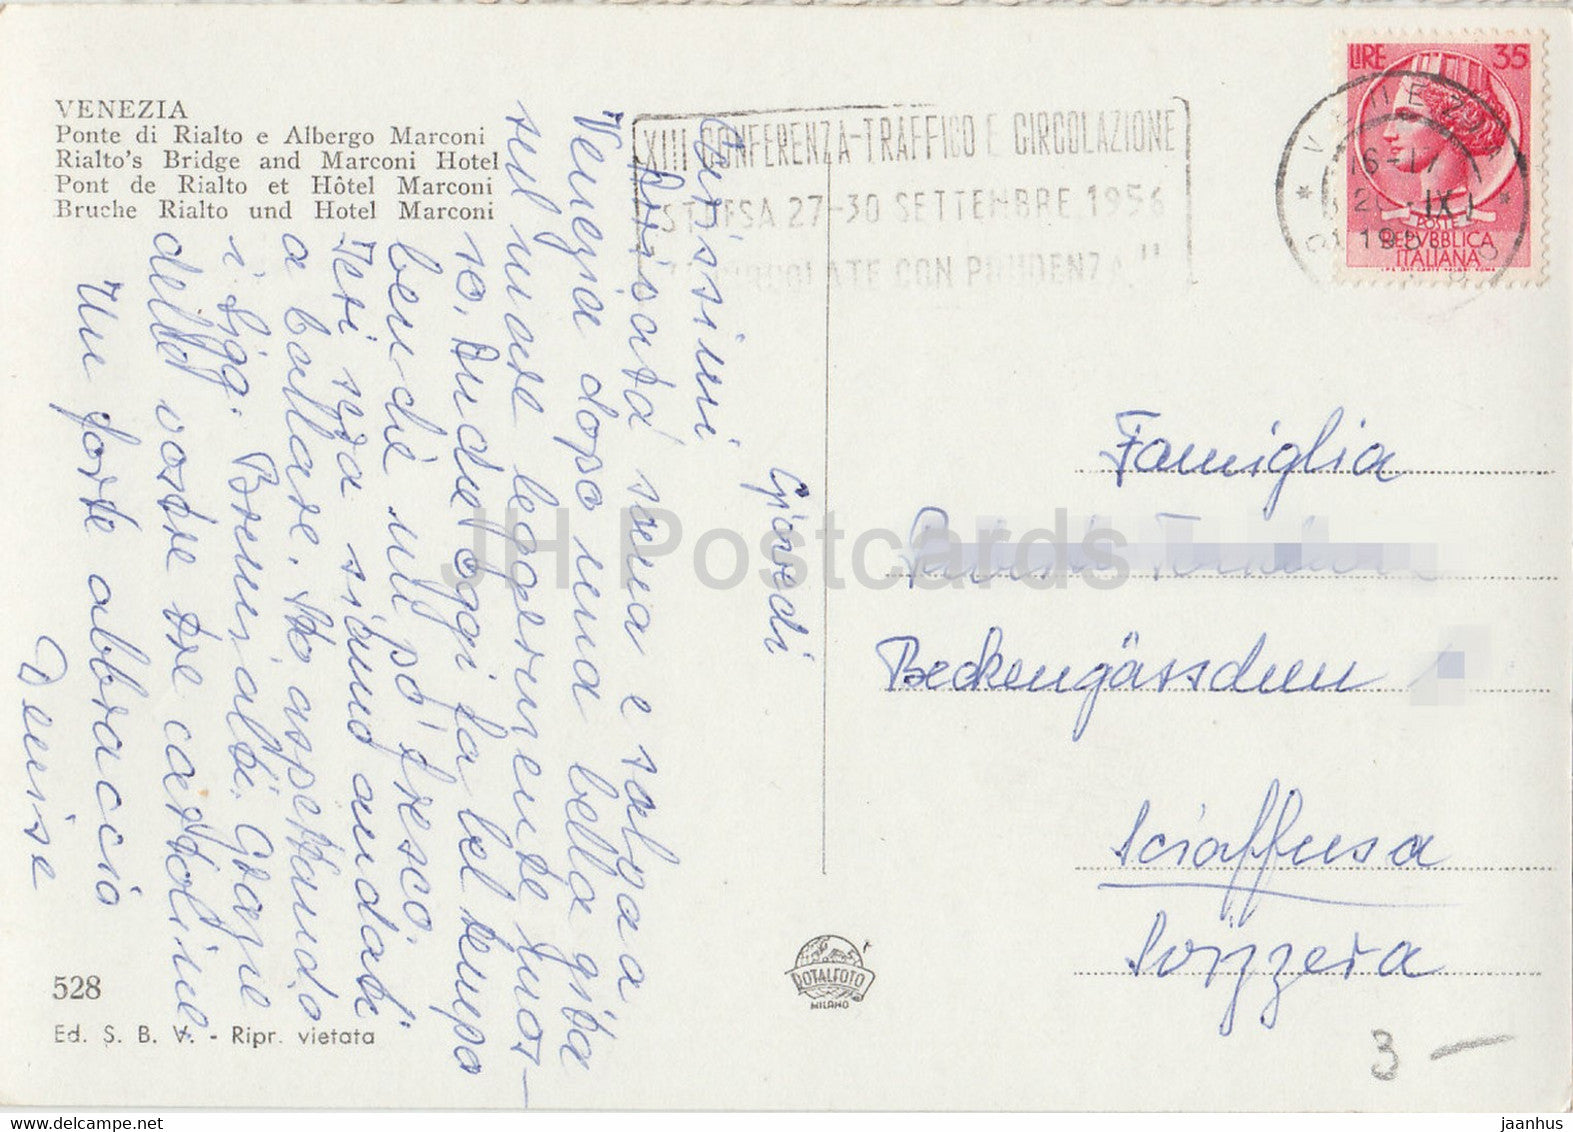 VENEZIA
Ponte di Rialto e Albergo Marconi
Rialto's Bridge and Marconi Hotel
Pont de Rialto et Hôtel Marconi
Bruche Rialto und Hotel Marconi
XIII CONFERENZA-TRAFFICO E CIRCOLAZIONE
STRESA 27-30 SETTEMBRE 1956
CIRCOLATE CON PRUDENZA"
VENEZIA
16-17
IX
LIRE 35
POSTE
REPVBBLICA
ITALIANA
Giovedi
Carissimi
Arrivata sana e salva a
Venezia dopo una bella gita
sul mare leggermente mos-
so. Anche oggi fa bel tempo
benché un pó fresco.
Ieri sera siamo andati
a ballare. Sto aspettando
i Sigg. Gragie
delle vostre tre cartoline
Un forte abbraccio
Denise
Famiglia
Beckengässchen
Sciaffusa
Svizzera
528
Ed. S. B. V. - Ripr. vietata
ROTALFOTO
MILANO
3 —
JH Postcards
jaanhus